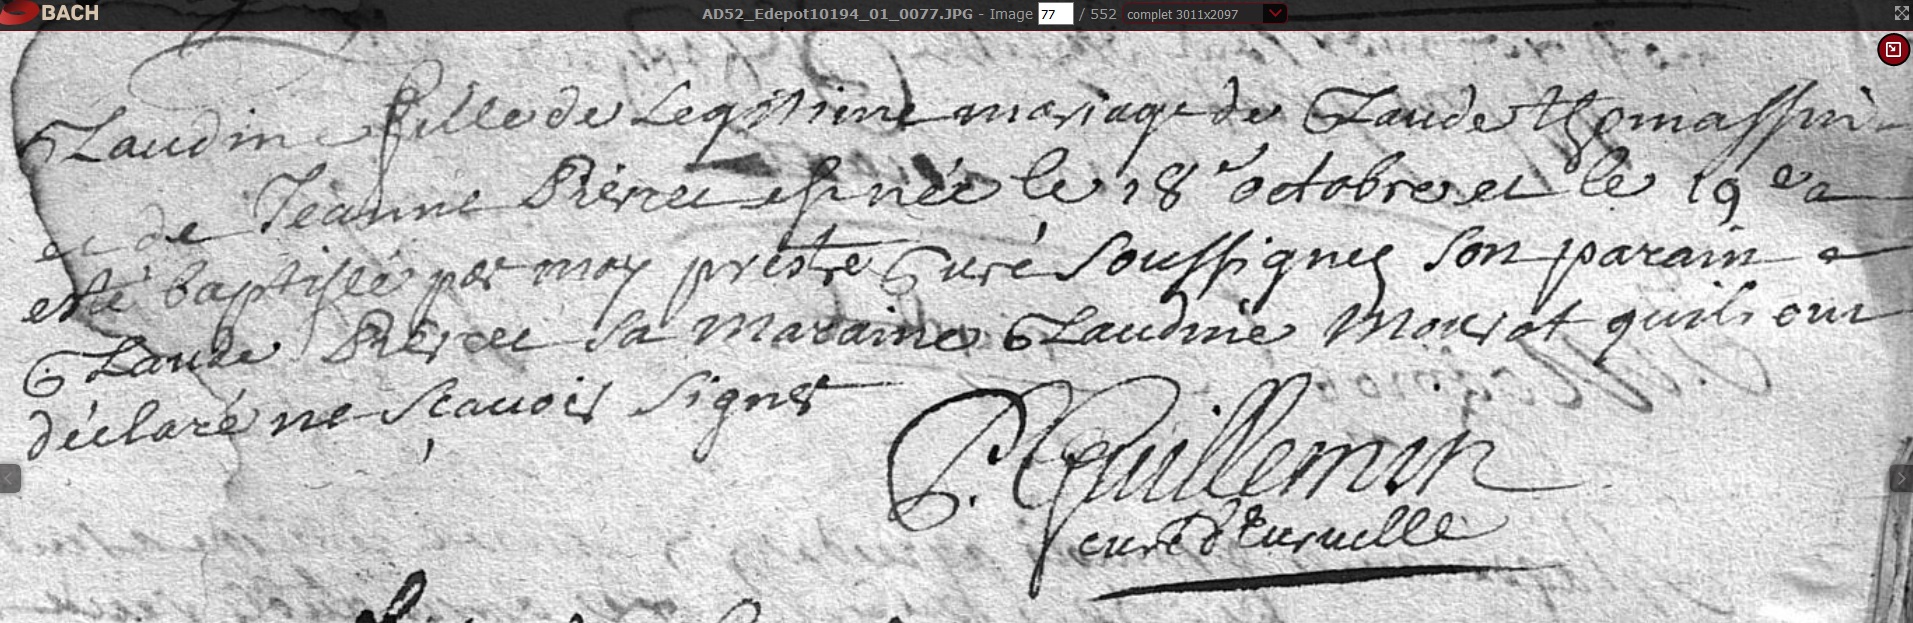 BACH
AD52_Edepot10194_01_0077.JPG - Image 77 / 552 complet 3011x2097
Claudine fille de Legitime mariage de Claude thomassin
et de Jeanne est née le 18e octobre et le 19e a
esté baptisée par moy prestre Curé soussigné son parain a
Claude sa maraine Claudine quils ont
déclaré ne scauoir signer
P. Guillemin
curé